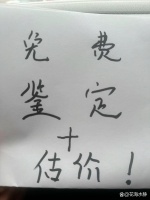 免费
鉴定
+
估价！
@花海水静